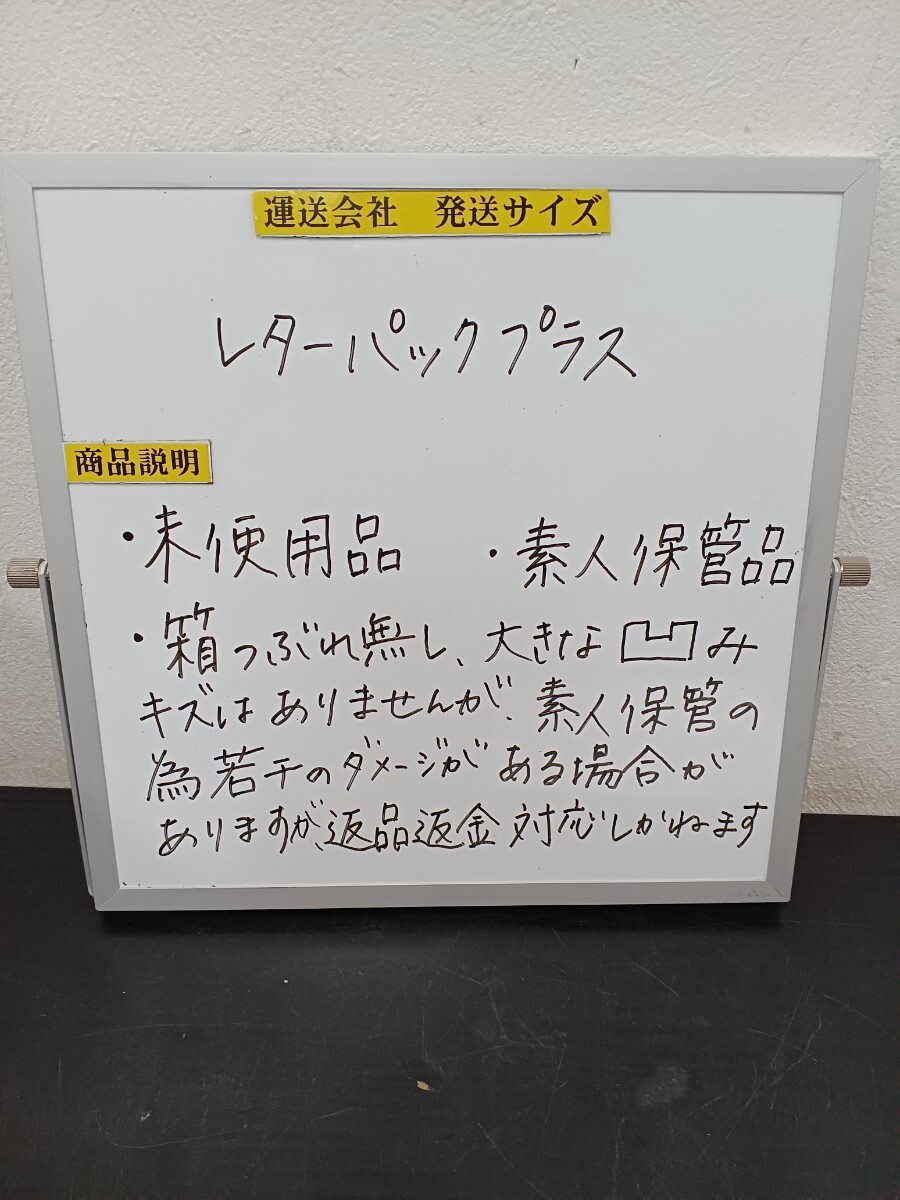 運送会社　発送サイズ
レターパックプラス
商品説明
・未使用品　・素人保管品
・箱つぶれ無し、大きな凹み
キズはありませんが、素人保管の
為若干のダメージがある場合が
ありますが、返品返金対応しかねます